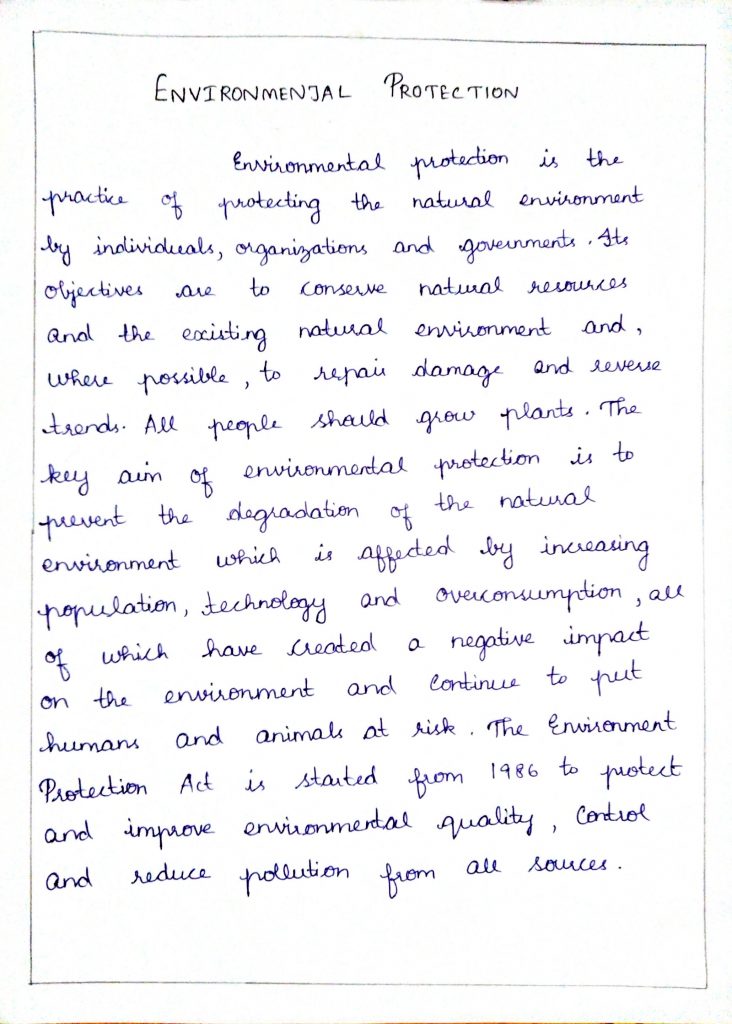 ENVIRONMENTAL PROTECTION
Environmental protection is the
practice of protecting the natural environment
by individuals, organizations and governments. Its
objectives are to conserve natural resources
and the existing natural environment and,
where possible, to repair damage and reverse
trends. All people should grow plants. The
key aim of environmental protection is to
prevent the degradation of the natural
environment which is affected by increasing
population, technology and overconsumption, all
of which have created a negative impact
on the environment and continue to put
humans and animals at risk. The Environment
Protection Act is started from 1986 to protect
and improve environmental quality, control
and reduce pollution from all sources.